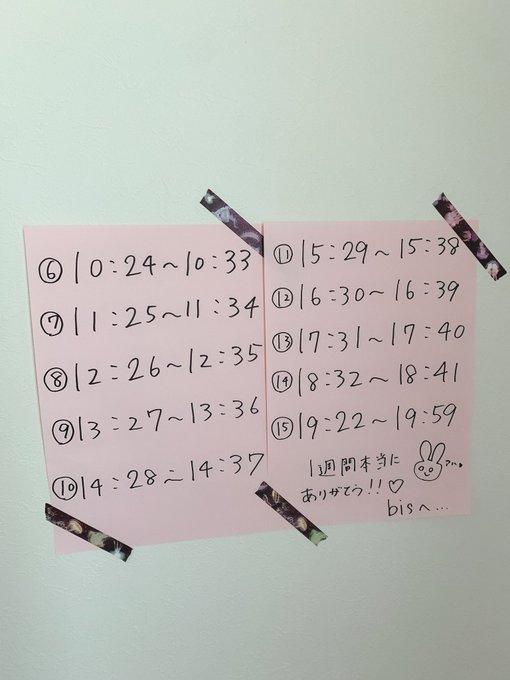 ⑥10:24~10:33
⑦11:25~11:34
⑧12:26~12:35
⑨13:27~13:36
⑩14:28~14:37
⑪15:29~15:38
⑫16:30~16:39
⑬17:31~17:40
⑭18:32~18:41
⑮19:22~19:59
1週間本当に
ありがとう!!♡
bisへ...